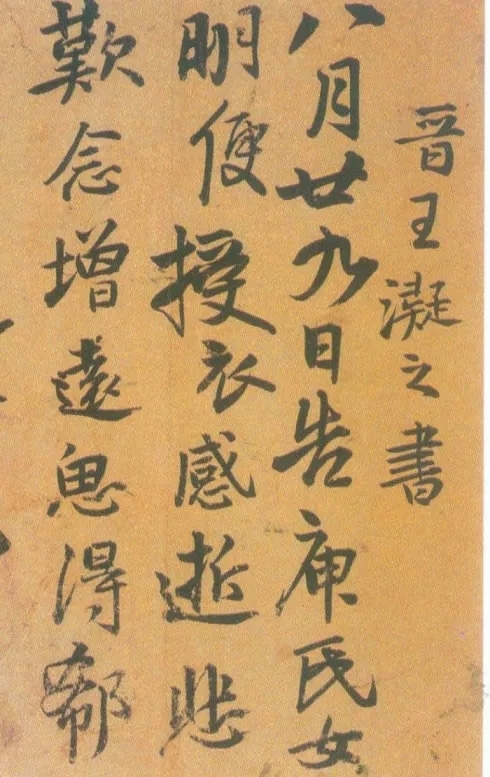 晉王凝之書
八月廿九日告庾氏女
明便授衣感逝悲
歎念增遠思得郗